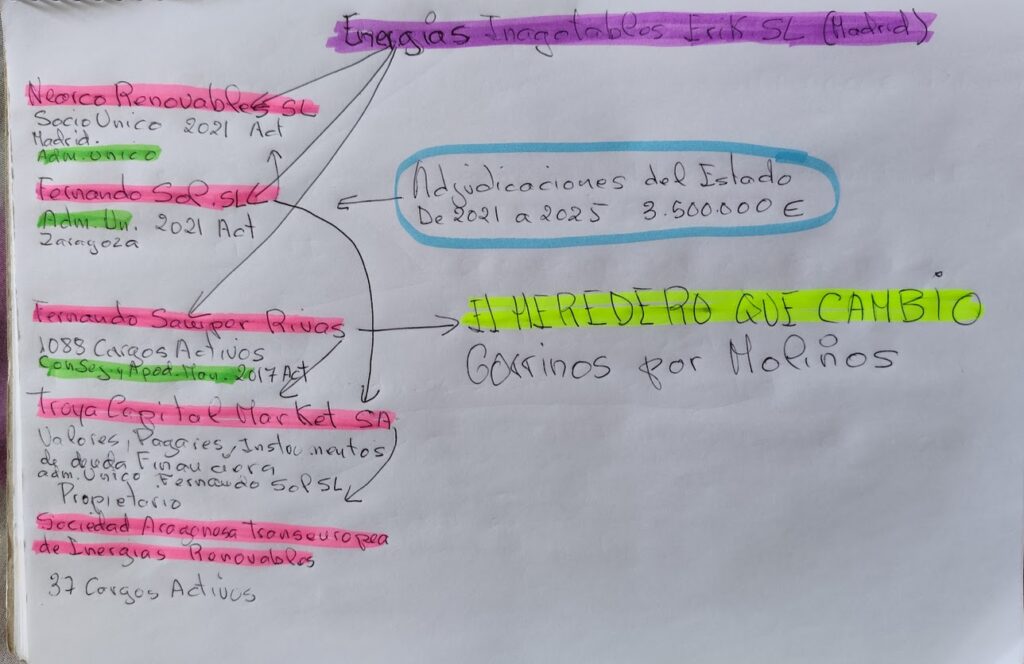 Energias Inagotables Erik SL (Madrid)
Neorco Renovables SL
Socio Unico 2021 Act
Madrid.
Adm. Unico
Fernando Sol. SL
Adm. Un. 2021 Act
Zaragoza
Adjudicaciones del Estado
De 2021 a 2025 3.500.000 €
Fernando Samper Rivas
1088 Cargos Activos
Consej. y Apod. Man. 2017 Act
El HEREDERO QUE CAMBIO
Gorrinos por Moliños
Troya Capital Market SA
Valores, Pagares, Instrumentos
de deuda Financiera
adm. Unico Fernando Sol SL
Propietario
Sociedad Aragonesa Transeuropea
de Energias Renovables
37 Cargos Activos